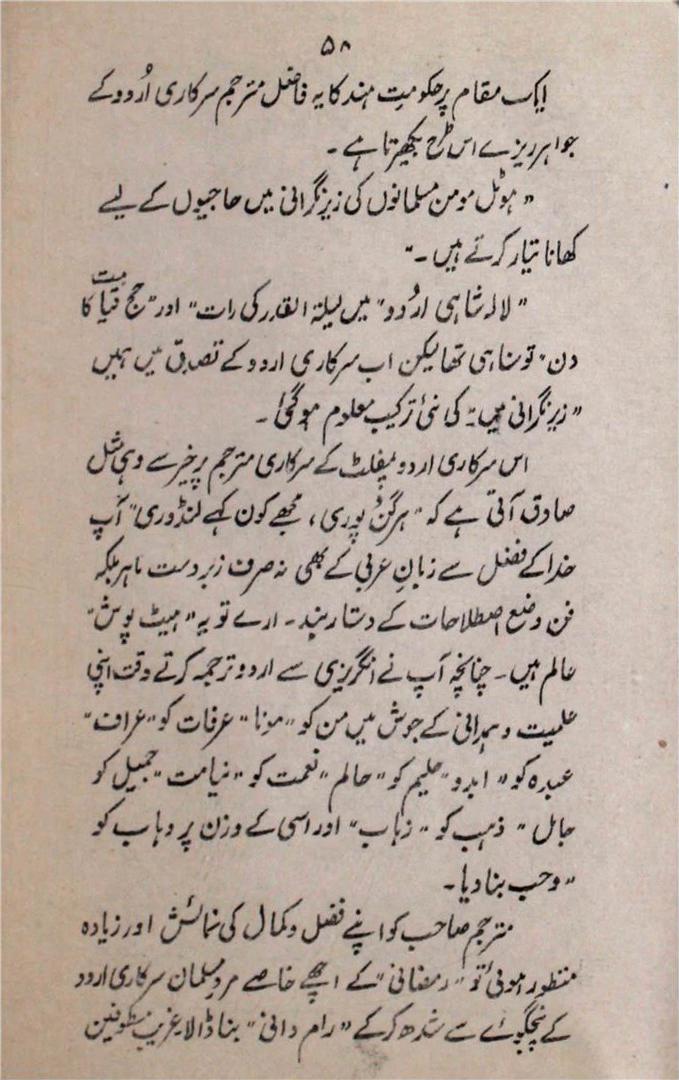 ۵۸
ایک مقام پر حکومتِ ہند کا یہ فاضل مترجم سرکاری اُردو کے
جواہر ریزے اس طرح بکھیرتا ہے ۔
"ہوٹل مومن مسلمانوں کی زیرِنگرانی میں حاجیوں کے لیے
کھانا تیار کرتے ہیں ۔"
"لالہ شاہی اردو" میں لیلۃ القدر کی رات" اور "حج قیامت کا
دن" تو سنا ہی تھا لیکن اب سرکاری اردو کے تصدق میں ہمیں
"زیرِنگرانی میں" کی نئی ترکیب معلوم ہو گئی ۔
اس سرکاری اردو پمفلٹ کے سرکاری مترجم پر خیر سے وہی مثل
صادق آتی ہے کہ "ہرگن پوری، مجھے کون کہے لنڈوری" آپ
خدا کے فضل سے زبانِ عربی کے بھی نہ صرف زبردست ماہر بلکہ
فن وضع اصطلاحات کے دستار بند ۔ ارے توبہ "ہیٹ پوش"
عالم ہیں ۔ چنانچہ آپ نے انگریزی سے اردو ترجمہ کرتے وقت اپنی
علمیت و ہمہ دانی کے جوش میں من کو "مونا" عرفات کو "عراف"
عبدہ کو "ابدو" حلیم کو "حالم" نعمت کو "نیامت" جمیل کو
جامل" ذہب کو "زہاب" اور اسی کے وزن پر وہاب کو
"وحب بنا دیا ۔
مترجم صاحب کو اپنے فضل و کمال کی نمائش اور زیادہ
منظور ہوئی تو "رمضانی" کے اچھے خاصے مرد مسلمان سرکاری اردو
کے پنچگوئے سے شدھ کر کے "رام دانی" بنا ڈالا۔ غریب